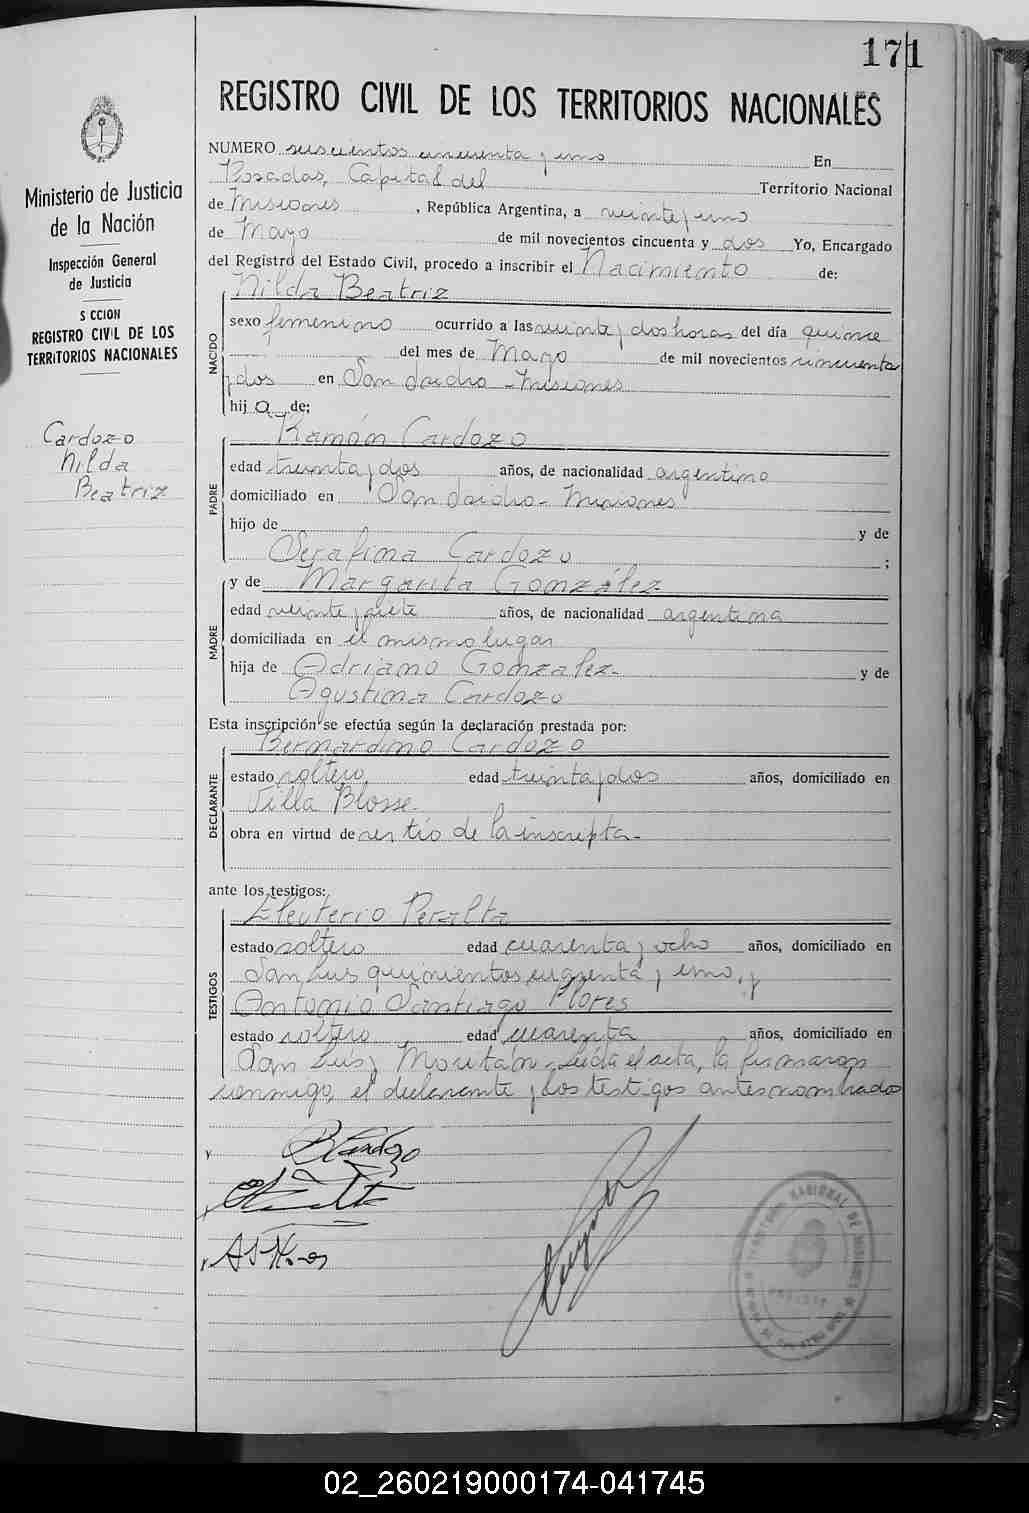 171
REGISTRO CIVIL DE LOS TERRITORIOS NACIONALES
Ministerio de Justicia
de la Nación
Inspección General
de Justicia
S CCION
REGISTRO CIVIL DE LOS
TERRITORIOS NACIONALES
Cardozo
Nilda
Beatriz
NUMERO seiscientos cincuenta y uno En
Posadas, Capital del Territorio Nacional
de Misiones, República Argentina, a veinte y uno
de Mayo de mil novecientos cincuenta y dos Yo, Encargado
del Registro del Estado Civil, procedo a inscribir el Nacimiento de:
NACIDO
Nilda Beatriz
sexo femenino ocurrido a las veinte y dos horas del día quince
del mes de Mayo de mil novecientos cincuenta
y dos en San Isidro - Misiones
hij a de;
PADRE
Ramón Cardozo
edad treinta y dos años, de nacionalidad argentino
domiciliado en San Isidro - Misiones
hijo de y de
Serafina Cardozo ;
MADRE
y de Margarita González
edad veinte y siete años, de nacionalidad argentina
domiciliada en el mismo lugar
hija de Adriano González y de
Agustina Cardozo
Esta inscripción se efectúa según la declaración prestada por:
DECLARANTE
Bernardino Cardozo
estado soltero edad treinta y dos años, domiciliado en
Villa Blosse
obra en virtud de ser tío de la inscripta -
ante los testigos:
TESTIGOS
Eleuterio Peralta
estado soltero edad cuarenta y ocho años, domiciliado en
San Luis quinientos cuarenta y uno, y
Antonio Santiago Flores
estado soltero edad cuarenta años, domiciliado en
San Luis y Moritán - Leída el acta, la firmaron
conmigo, el declarante y los testigos antes nombrados
B Cardozo
A S Flores
TERRITORIO NACIONAL DE MISIONES
02_260219000174-041745